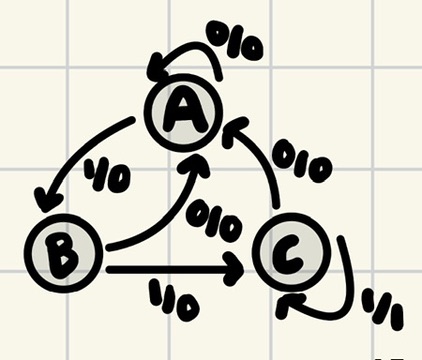 0/0
A
1/0
0/0
0/0
B
C
1/0
1/1